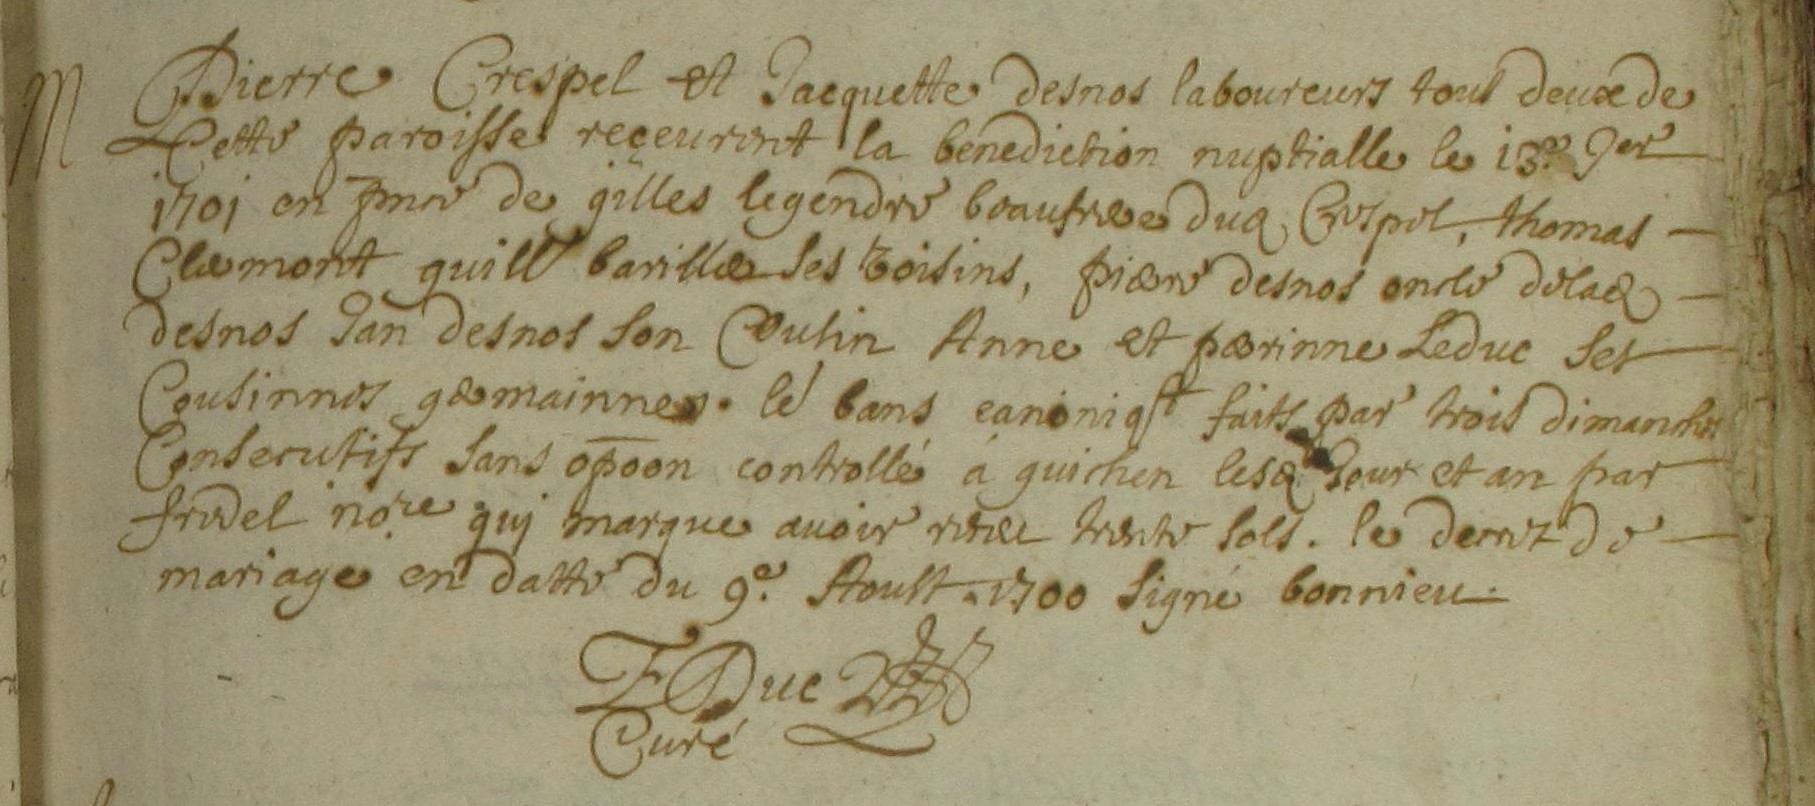 M Pierre Crespel et Jacquette desnos laboureurs tous deux de
Cette paroisse reçeurent la benediction nuptialle le 13e. 9er
1701 en pnce de gilles legendre beaufrere dud Crespel, thomas
Clermont guill barillier ses voisins, pierre desnos oncle de lad
desnos Jan desnos son Cousin Anne et perrinne Leduc ses
Cousinnes germainnes. lé bans canoniqt faits par trois dimanches
Consecutifs sans opoon controllé á guichen lesd Jour et an par
fredel nore quj marque avoir receu trente sols. le decret de
mariage en datte du 9e. Aoust. 1700 signé bonnieu.
F Duc
Curé